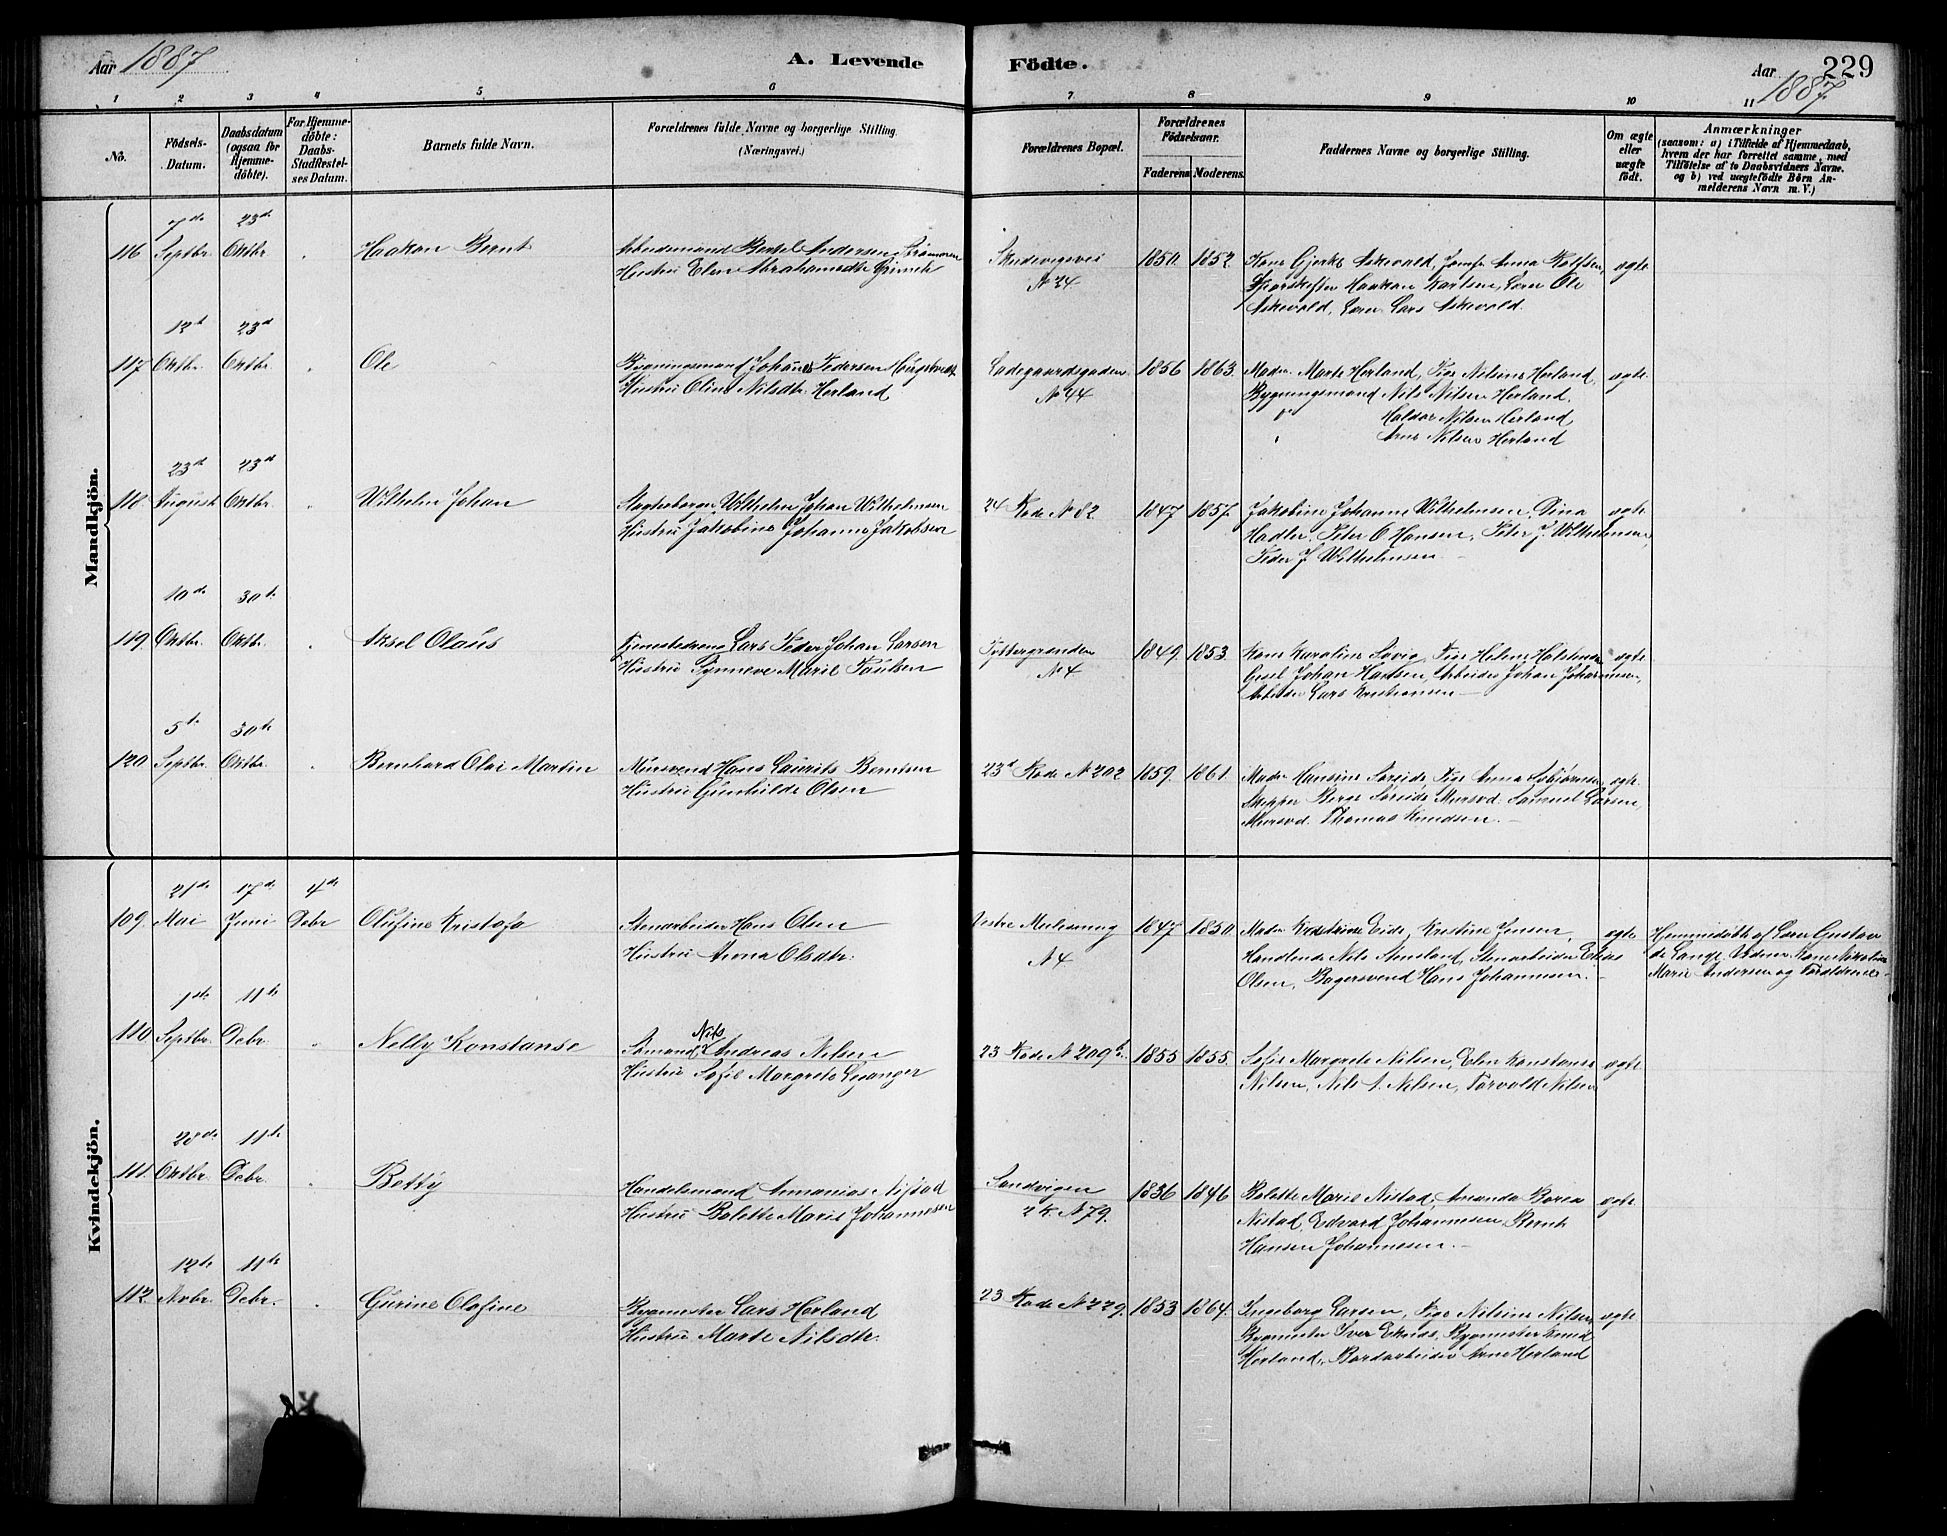 Aar 1887
A. Levende Födte.
Aar 1887
229
1 2 3 4 5 6 7 8 9 10 11
No.
Födsels-Datum.
Daabsdatum (ogsaa for Hjemme-döbte).
For Hjemme-döbte: Daabs-Stadfæstel-ses Datum.
Barnets fulde Navn.
Forældrenes fulde Navne og borgerlige Stilling. (Næringsvei.)
Forældrenes Bopæl.
Forældrenes Födselsaar.
Faderens Moderens
Faddernes Navne og borgerlige Stilling.
Om ægte eller uægte födt.
Anmærkninger
(saasom: a) i Tilfælde af Hjemmedaab,
hvem der har forrettet samme, med
Tilföielse af to Daabsvidners Navne.
og b) ved uægtefödte Börn An-
melderens Navn m. V.)
Mandkjön.
7de 23de
116 Septbr. Oktbr. Haakon Bernt Arbeidsmand Bertel Andersen
Hustru Elen Abrahamsdtr.
Skudevigsvei
N 24
1850. 1852.
Kone Gjerke Askevold, Jomfr Anna Rolfsen,
Haakon Karlsen, Søren Ole
Askevold, Lars Askevold.
ægte
12te 23de
117. Oktbr. Oktbr. Ole Bygningsmand Johannes Pedersen
Hustru Oline Nilsdtr. Herland
Ladegaardsgaden
N 44
1856 1863.
Madm. Marte Herland, Pige Nilsine Herland,
Bygningsmand Nils Nilsen Herland.
" Haldor Nilsen Herland
" Arne Nilsen Herland
ægte.
23de 23de
118. August Oktbr. Wilhelm Johan Wilhelm Johan Wilhelmsen
Hustru Jakobine Johanne Jakobsen
24 Rode N 82.
1847 1857.
Jakobine Johanne Wilhelmsen, Dina
Hadler, Peter O Hansen, Peter J. Wilhelmsen,
Peder J Wilhelmsen.
ægte
10de 30te
119. Oktbr. Oktbr. Aksel Olaus Tjenestedreng Lars Peder Johan Larsen
Hustru Synneve Marie Poulsen
N 4
1849. 1853.
Kone Karoline Søvig, Pige Helene
Johan Hansen, Arbeider Johan Johannesen,
Arbeider Lars Kristiansen
ægte
5te 30te
120. Septbr. Oktbr. Bernhard Olai Martin Mursvend Hans Laurits Berntsen
Hustru Gunhilde Olsen
23d Rode N 202
1859. 1861.
Madm Hansine Sørside, Pige Anna
Skipper Berge Sørside Mursvd. Samuel Larsen,
Mursvd. Thomas Knudsen.
ægte.
Kvindekjön.
21de 17de 4de
109. Mai Juni Debr Olufine Kristofa Stenarbeider Hans Olsen
Hustru Anna Olsdtr.
Vestre Murlesmug
N 4.
1847 1850.
Madm Eide, Kristine Jensen,
Handlende Nils Stensland, Stenarbeider Elias
Olsen, Bagersvend Hans Johannesen.
ægte
Hjemmedøbt af Gustav
de Lange, Vidner Kone Nikoline
Marie Andersen og Forældrene
1ste 11te
110 Septbr. Debr. Nelly Konstanse Nils
Sømand Andreas Nilsen
Hustru Sofie Margrete Lysanger
23 Rode N 209 b.
1855 1855.
Sofie Margrete Nilsen, Elen Konstanse
Nilsen, Nils A. Nilsen, Torvald Nilsen
ægte
28de 11te
111. Oktbr. Debr. Betty Handelsmand Annanias Nistad
Hustru Bolette Marie Johannesen
Sandvigen
2 R. N 79.
1836 1846
Bolette Marie Nistad, Amanda Borea
Nistad, Edvard Johannesen, Bernt
Hansen Johannesen.
ægte.
12te 11te
112. Novbr. Debr. Gurine Olafine Bygmester Lars Herland
Hustru Marte Nilsdtr.
23 Rode N 229.
1853 1864.
Ingeborg Larsen, Pige Nilsine Nilsen,
Bygmester Iver Bygmester Knud
Herland, Bordarbeider Arne Herland
ægte